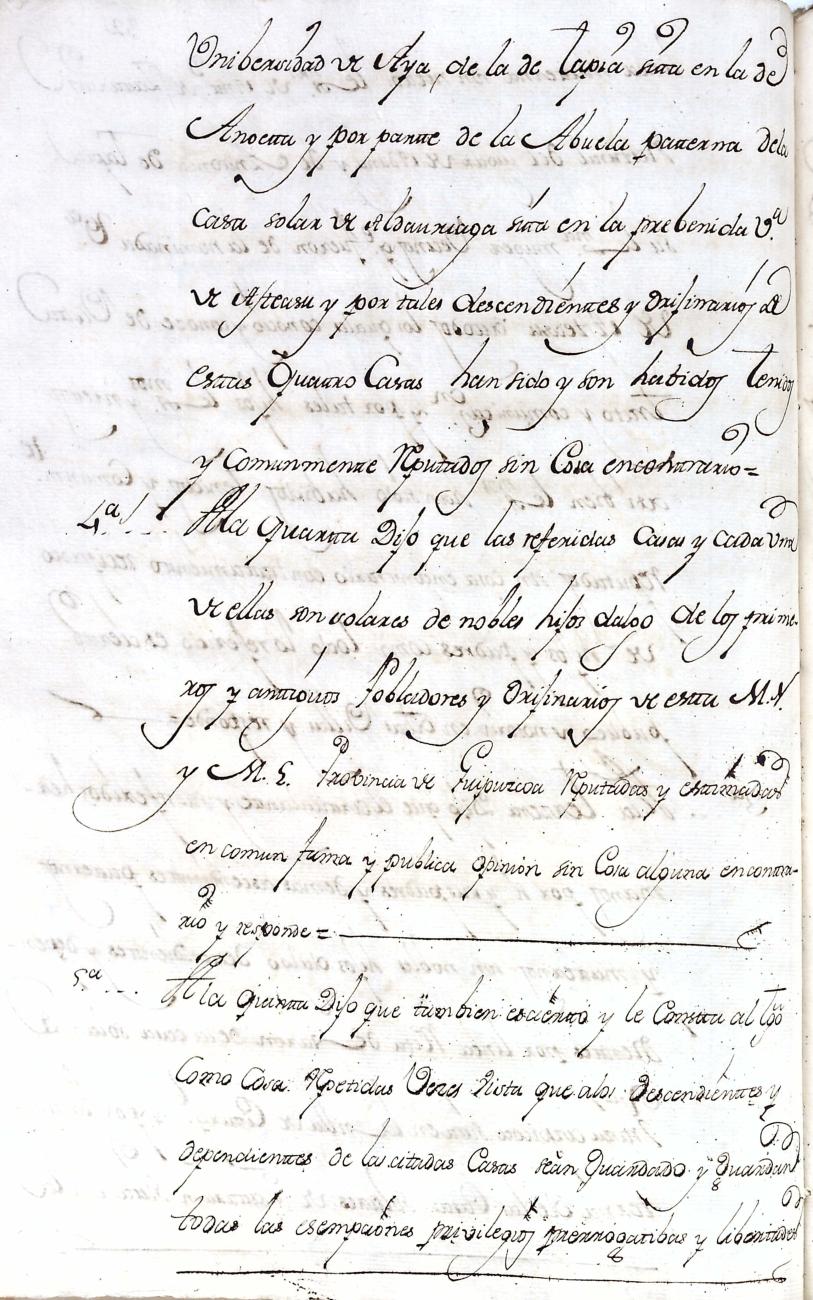 Unibersidad de Aya, de la de Tapia sitta en la de
Anoetta y por partte de la Abuela patterna de la
Casa solar de Aldauriaga sitta en la prebenida V.ª
de Asteasu y por tales descendienttes y Orijinarios de
esttas Quatro Casas han sido y son habidos tenidos
y Comunmentte Reputados sin Cosa en contrario =
4.ª A la Quartta Dijo que las referidas Casas y cada Una
de ellas son solares de nobles hijos dalgo de los prime-
ros y antiguos Pobladores y Orijinarios de estta M. N.
y M. L. Probincia de Guipuzcoa Reputadas y estimadas
en comun fama y publica opinion sin Cosa alguna en contra-
rio y responde =
5.ª A la quintta Dijo que tambien es cierto y le Constta al tgo
Como Cosa Repetidas Vezes Vista que a los Descendienttes y
dependienttes de las citadas Casas se an Guardado y Guardan
todas las esempciones privilegios prerrogatibas y liberttades